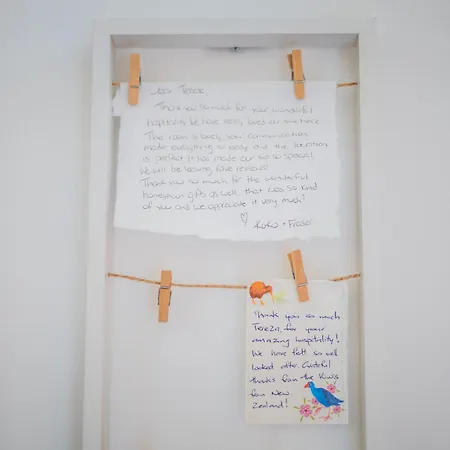 Dear Tereza,
Thank you so much for your wonderful
hospitality. We have really loved our time here.
The room is lovely, your communication
made everything so easy and the location
is perfect. It has made our trip so special!
We will be leaving rave reviews!
Thank you so much for the wonderful
honeymoon gifts as well, that was so kind
of you and we appreciate it very much!
♡ Koko + Fraser
Thank you so much
Tereza, for your
amazing hospitality!
We have felt so well
looked after. Grateful
thanks from the Kiwis
from New
Zealand!